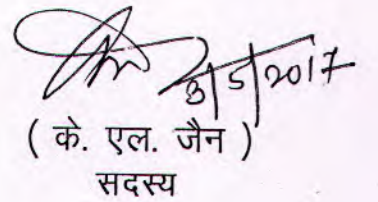 3/5/2017
( के. एल. जैन )
सदस्य